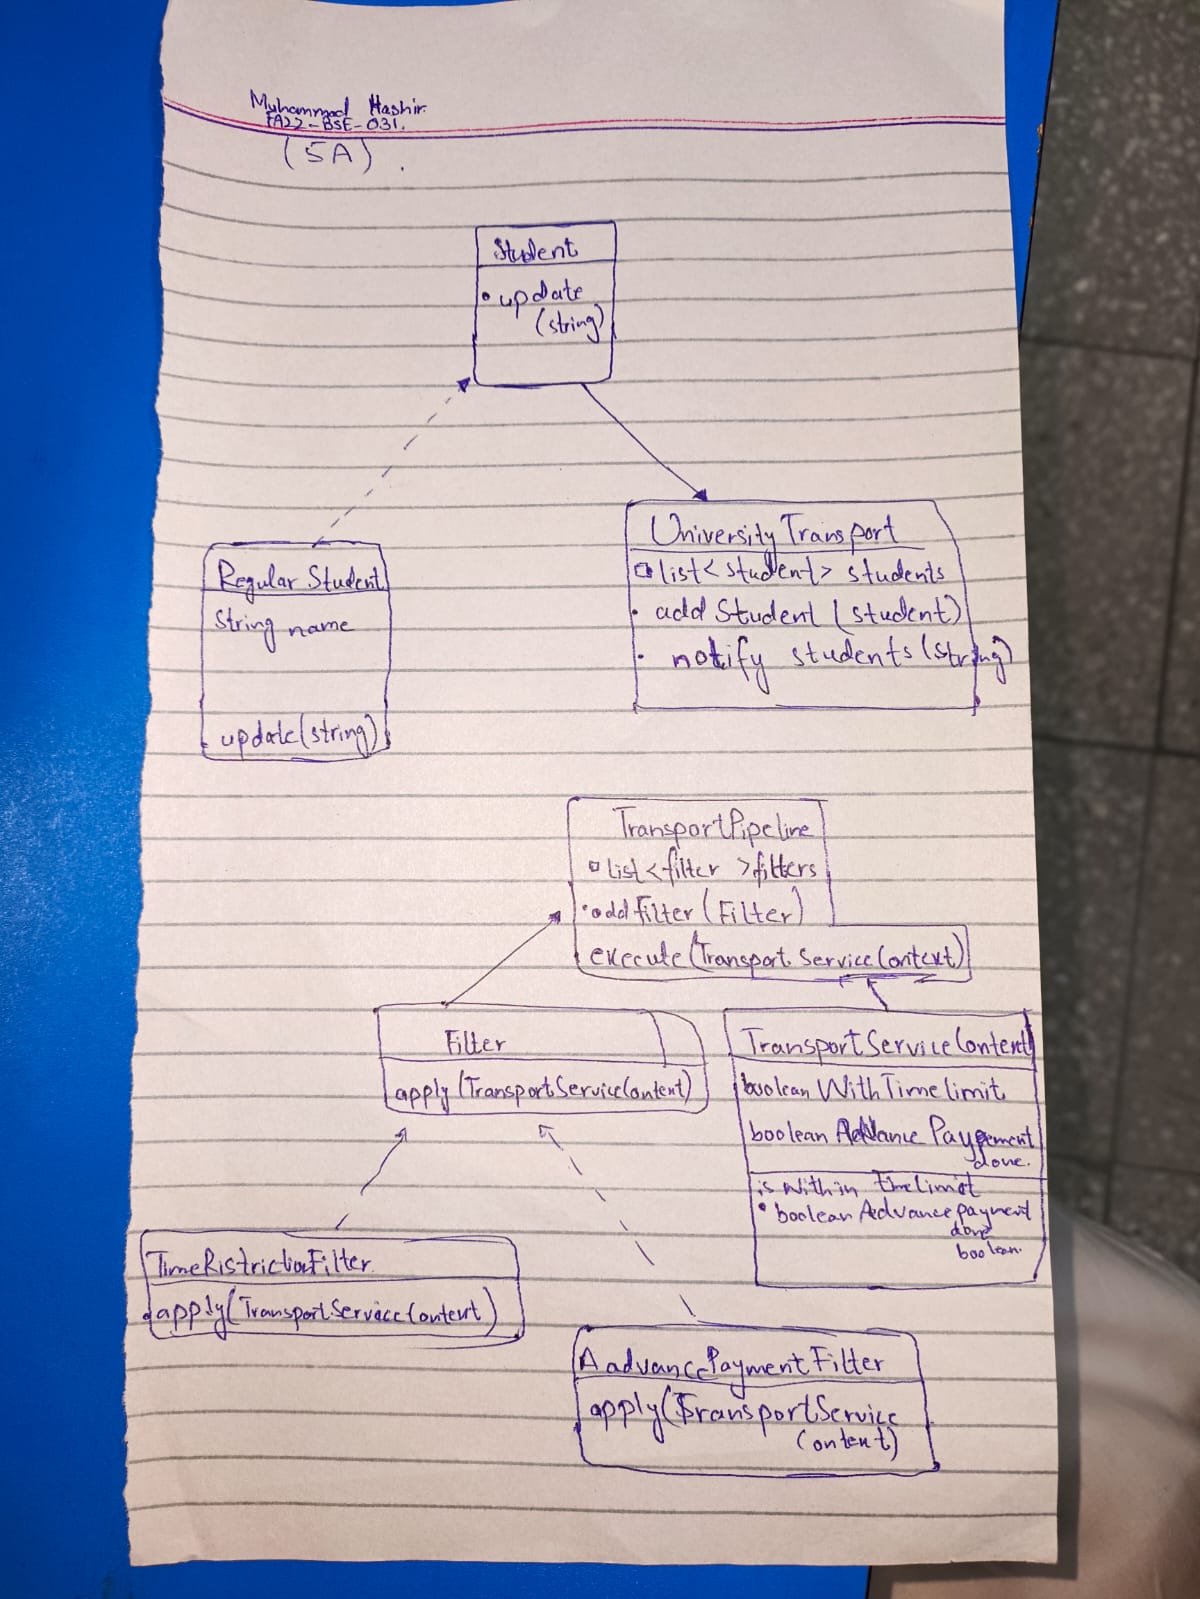 Muhammad Hashir
FA22-BSE-031.
(5A).
Student
• update
(string)
Regular Student
String name
update(string)
University Transport
list<student> students
• add Student (student)
• notify students (string)
TransportPipeline
list<filter>filters
• addFilter(Filter)
execute(Transport Service Context)
Filter
apply(TransportServiceContext)
TransportServiceContext
boolean WithTimelimit
boolean Advance Payement
done.
is within timelimit
• boolean Aedvance payment
done
boolean.
TimeRistrictionFilter
• apply(TransportServiceContext)
AadvancePaymentFilter
apply(TransportService
Context)